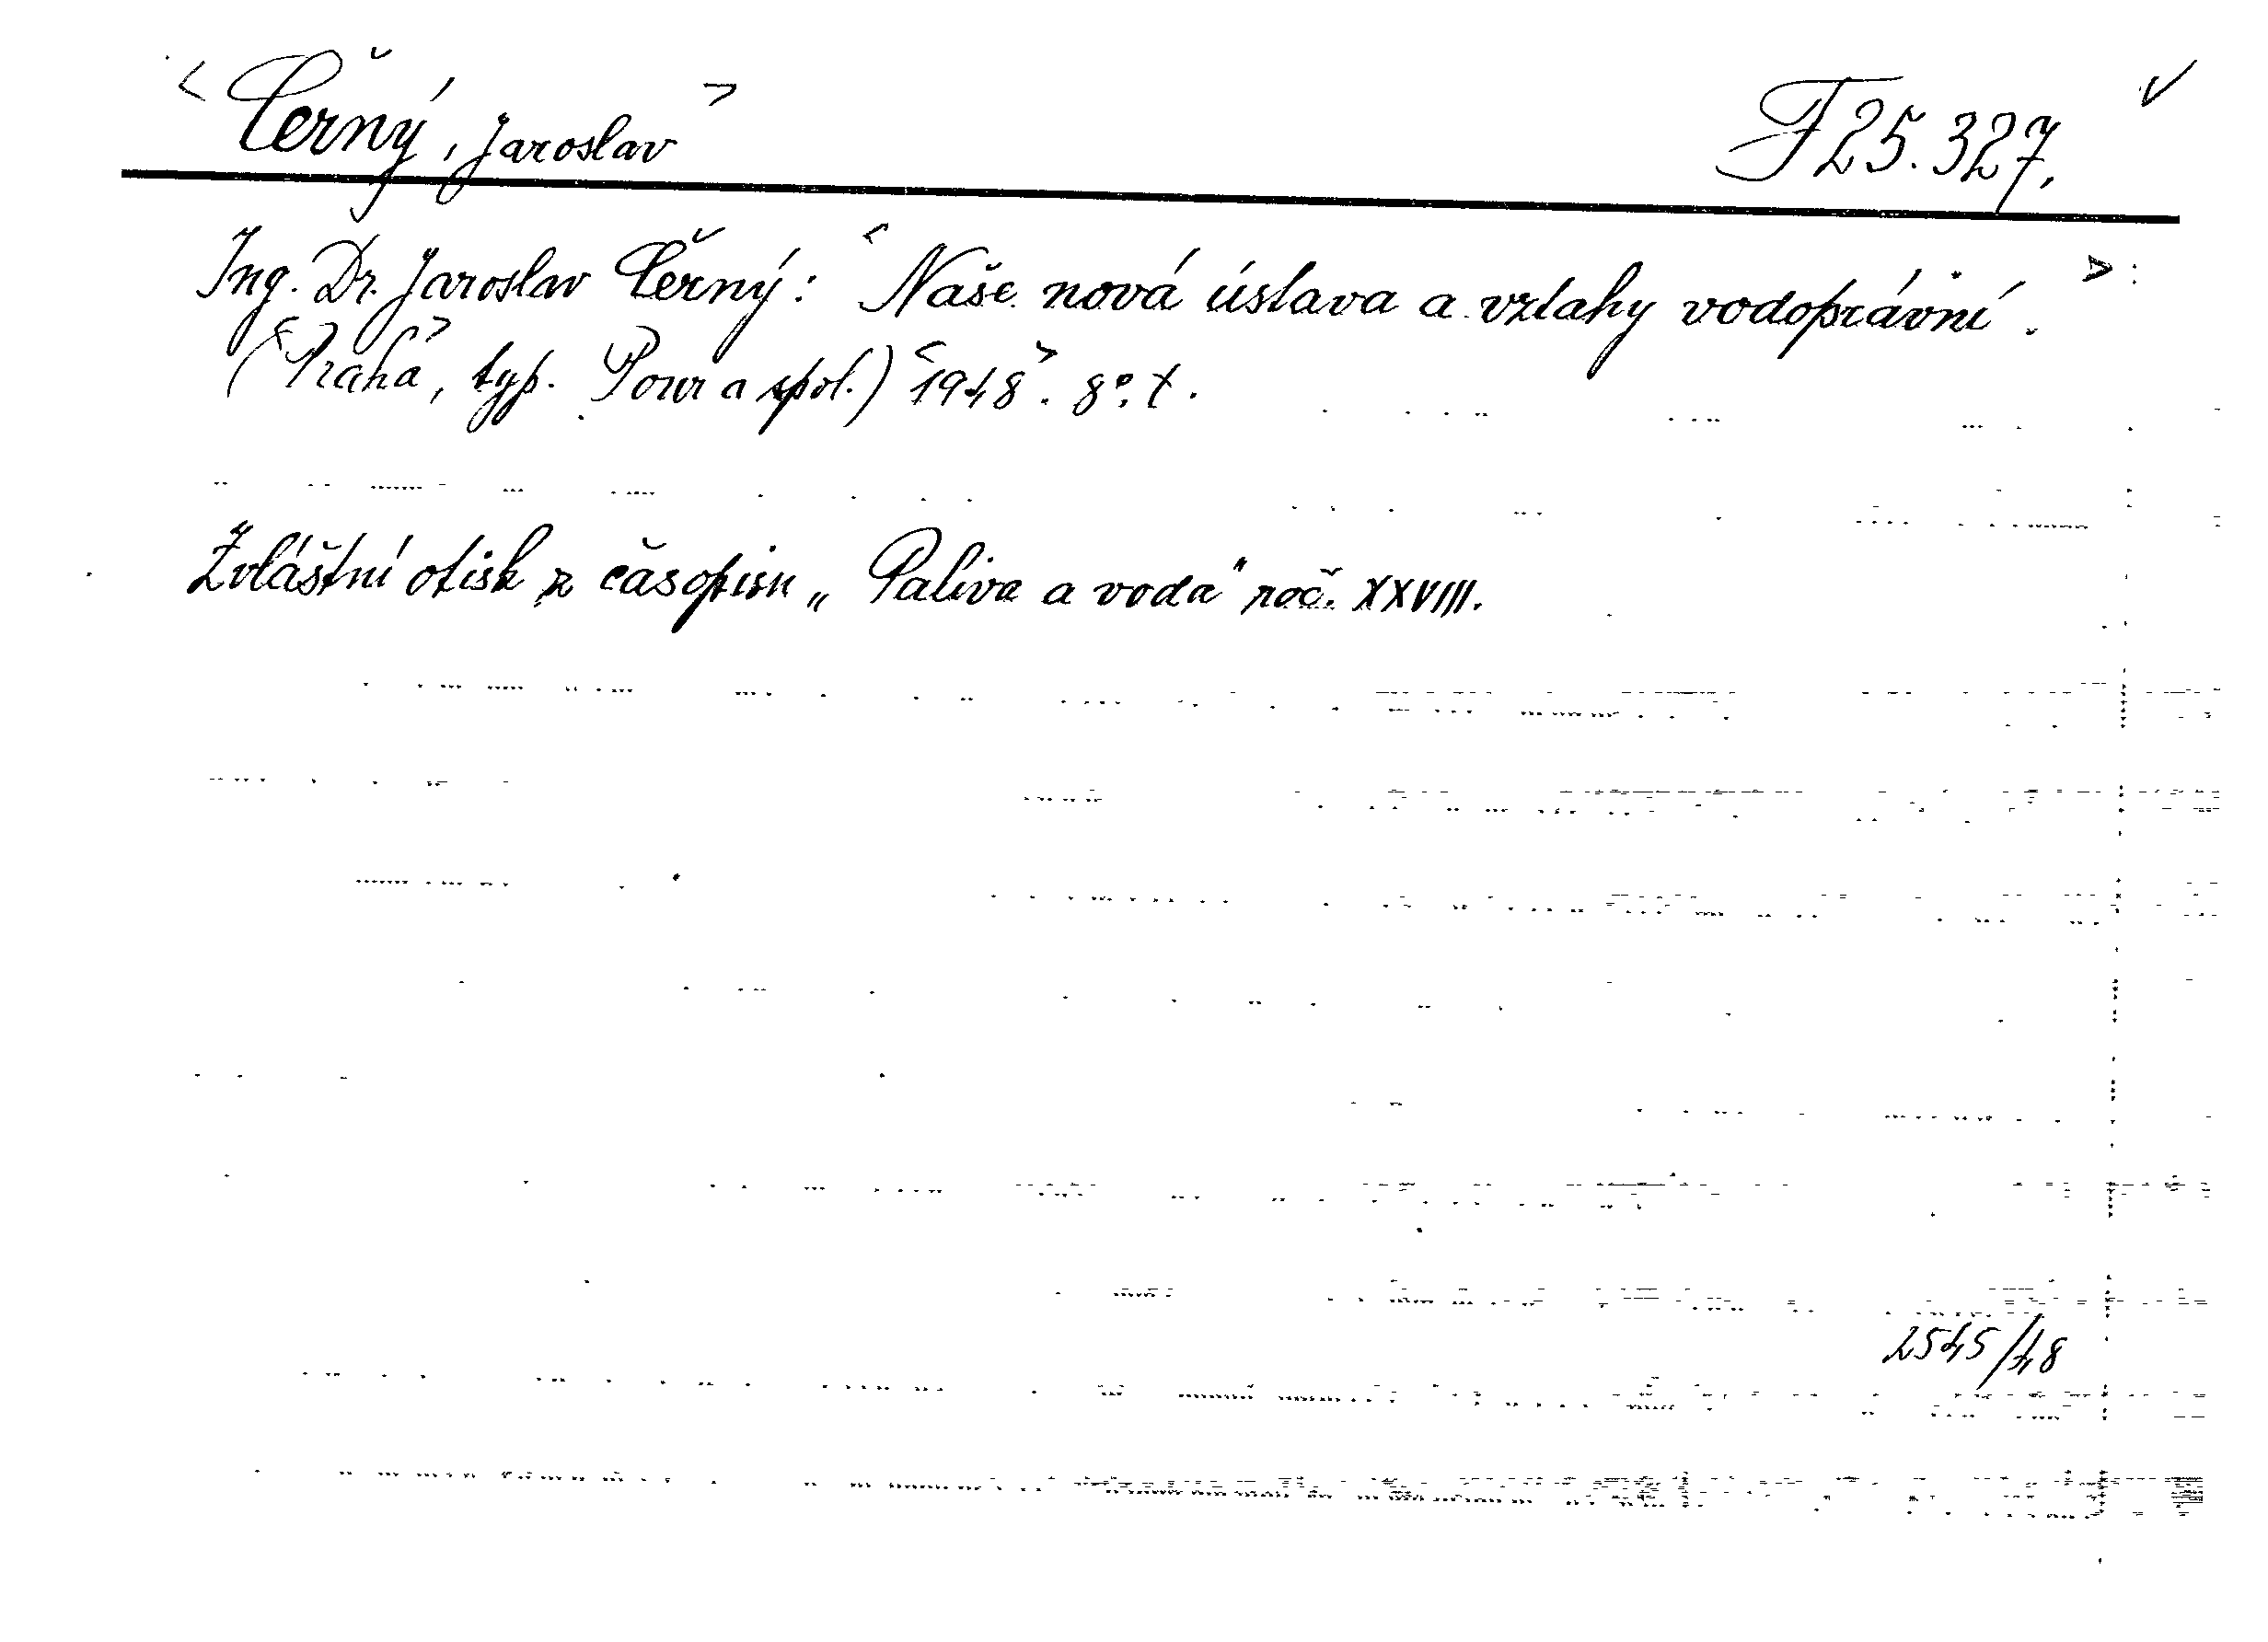 < Černý, Jaroslav > F 25.327. ✓
Ing. Dr. Jaroslav Černý: <Naše nová ústava a vztahy vodoprávní. > :
(<Praha>, typ. Pour a spol.) <1948>. 8°. t.
Zvláštní otisk z časopisu „Paliva a voda" roč. XXVIII.
2545/48